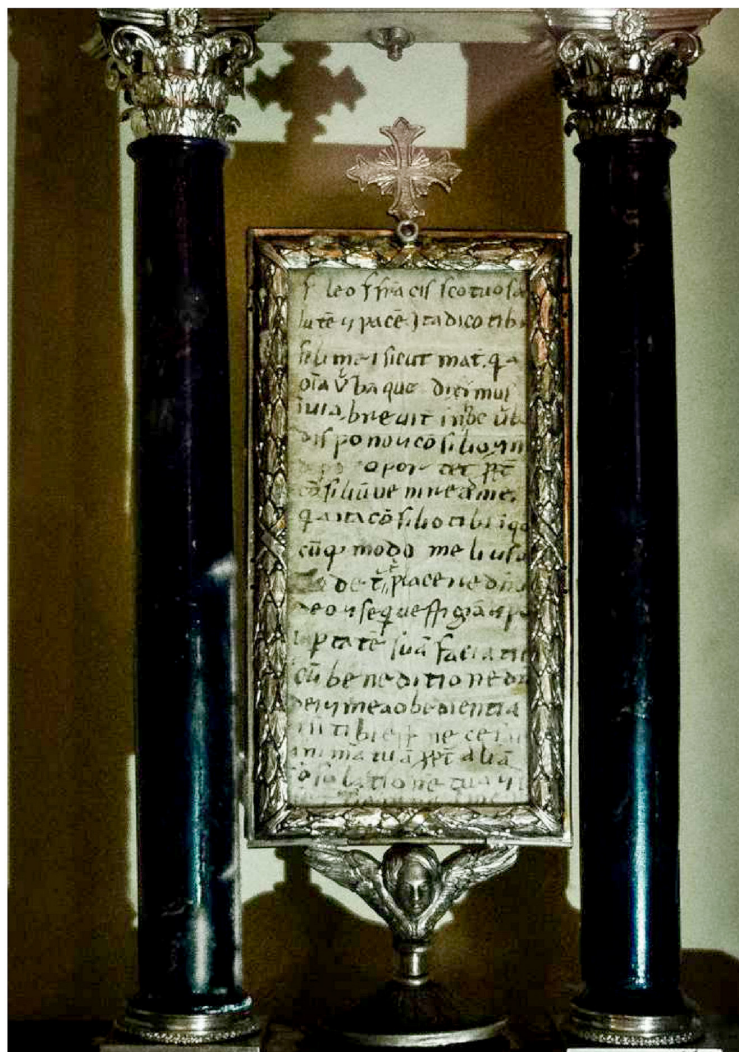 f leo f francisscotuosa
lutē ⁊ pacē Jta dico tibi
fili mei sicut mat. q̄a
oīa v̄ba que diximus
īuia breuit in hoc v̄b
dispono ⁊ cōsilio ⁊ nō
oportet ꝑpt
cōsiliū uenire ad me.
q̄a ita cōsilio tibi iqo
cūq modo melius
de tī placere dño
deo ⁊ seq̄ue
ptatē suā faciatis
cū beneditione dn̄i
dei ⁊ mea obedientia
tibi neces
animā tuā ꝑpt aliā
tione tuā ⁊